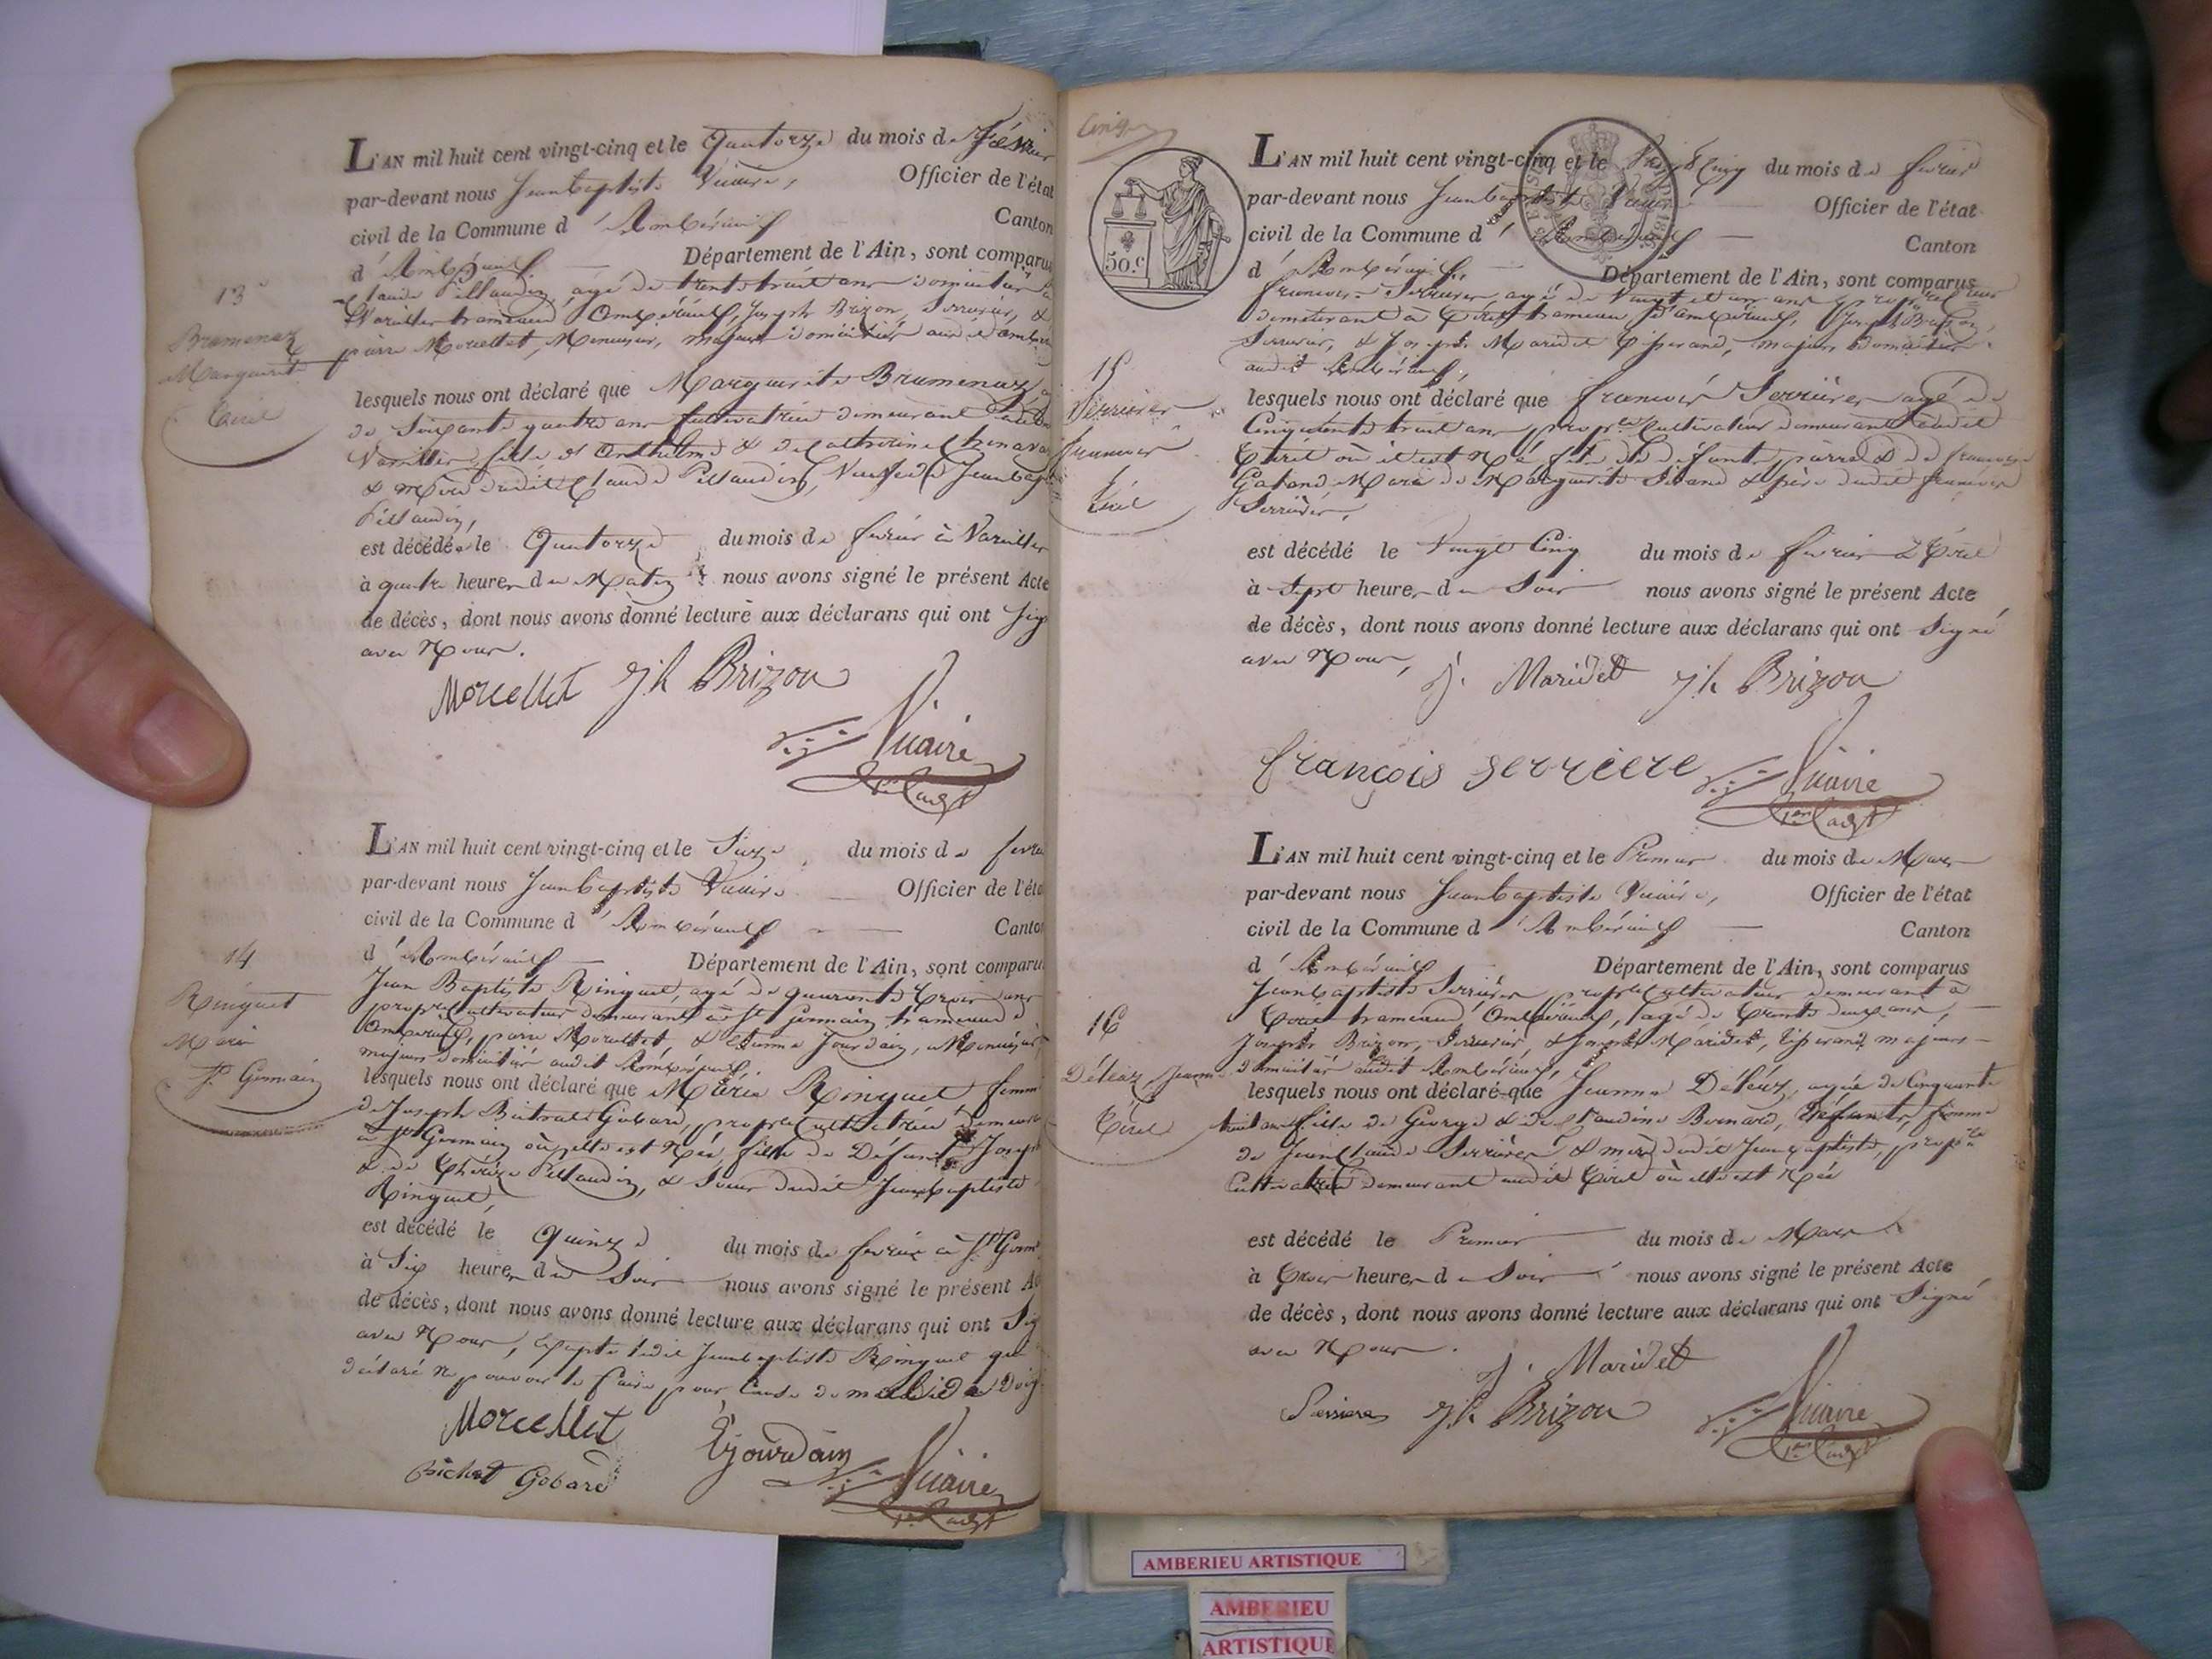 L'AN mil huit cent vingt-cinq et le Quatorze du mois de Février
par-devant nous Jean baptiste Vicaire, Officier de l'état
civil de la Commune d' Ambérieux Canton
d' Ambérieux Département de l'Ain, sont comparus
13
Claude Pillaudin, agé de trente huit ans domicilié à
Vareilles hameau d'Ambérieux, Joseph Brizon, Serrurier, &
Bramenaz
pierre Morcellet, Menuisier, majeurs domiciliés audit ambér
Marguerite
lesquels nous ont déclaré que Marguerite Bramenaz
de Soixante quatre ans Cultivatrice demeurant audit
Vareilles fille d' Anthelme & de Catherine
& mère dudit Claude Pillaudin, Veuve de Jean bap
Pillaudin,
est décédée le Quatorze du mois de fevrier à Vareilles
à quatre heures du Matin & nous avons signé le présent Acte
de décès, dont nous avons donné lecture aux déclarans qui ont Sig
avec Nous.
Morcellet Jh Brizon
Vicaire
L'AN mil huit cent vingt-cinq et le Seize du mois de fevri
par-devant nous Jean baptiste Vicaire Officier de l'éta
civil de la Commune d' Ambérieux Canton
14
d' Ambérieux Département de l'Ain, sont comparu
Ringuet
Jean Baptiste Ringuet, agé de quarante trois ans
propre cultivateur demeurant à St Germain hameau d'
Marie
Ambérieux, pierre Morcellet, & Etienne Jourdain, Menuisier,
St Germain
majeurs domiciliés audit Ambérieux,
lesquels nous ont déclaré que Marie Ringuet femme
de Joseph Gobard, propre cultivatrice demeura
à St Germain où elle est Née, fille de Défunt Joseph
& de Thérèse Pillaudin, & Soeur dudit Jean baptiste
Ringuet,
est décédé le Quinze du mois de fevrier à St Germ
à Six heures du Soir nous avons signé le présent Ac
de décès, dont nous avons donné lecture aux déclarans qui ont Sig
avec Nous, Excepté ledit Jean baptiste Ringuet qui
déclaré Ne pouvoir le faire pour Cause de mal
Morcellet
E Jourdain
Gobard
Vicaire
Cinq
50.c
L'AN mil huit cent vingt-cinq et le Vingt Cinq du mois de fevrier
par-devant nous Jean baptiste Vicaire Officier de l'état
civil de la Commune d' Ambérieux Canton
d' Ambérieux, Département de l'Ain, sont comparus
francois Serrière, agé de Vingt et un ans propriétaire
demeurant à Tiret hameau d'ambérieux, Joseph Brizon,
Serrurier, & Joseph Maridet Tisserand, majeurs domiciliés
15
audit Ambérieux,
Serrière
lesquels nous ont déclaré que francois Serrière agé de
Cinquante huit ans propre Cultivateur demeurant audit
francois
Tiret où il est Né fils de défunts pierre & de francoise
Tiret
Mari de Marguerite & père dudit francois
Serrière,
est décédé le Vingt Cinq du mois de fevrier à Tiret
à Sept heures du Soir nous avons signé le présent Acte
de décès, dont nous avons donné lecture aux déclarans qui ont Signé
avec Nous,
J. Maridet Jh Brizon
françois serriere Vicaire
L'AN mil huit cent vingt-cinq et le Premier du mois de Mars
par-devant nous Jean baptiste Vicaire, Officier de l'état
civil de la Commune d' Ambérieux Canton
d' Ambérieux Département de l'Ain, sont comparus
Jean baptiste Serrière propre cultivateur demeurant à
Tiret hameau d'Ambérieux, agé de trente deux ans,
16
Joseph Brizon, Serrurier, & Joseph Maridet, Tisserand majeurs
Déléaz, Jeanne
domiciliés audit Ambérieux,
lesquels nous ont déclaré que Jeanne Déléaz, agée de Cinquante
Tiret
huit ans fille de George & de Claudine Bernard, Défunts, femme
de Jean Claude Serrière & mère dudit Jean baptiste, propre
Cultivatrice demeurant audit Tiret où elle est Née
est décédé le Premier du mois de Mars
à Trois heures du Soir nous avons signé le présent Acte
de décès, dont nous avons donné lecture aux déclarans qui ont Signé
avec Nous.
J. Maridet
Serriere Jh Brizon Vicaire
AMBERIEU ARTISTIQUE
AMBERIEU
ARTISTIQUE